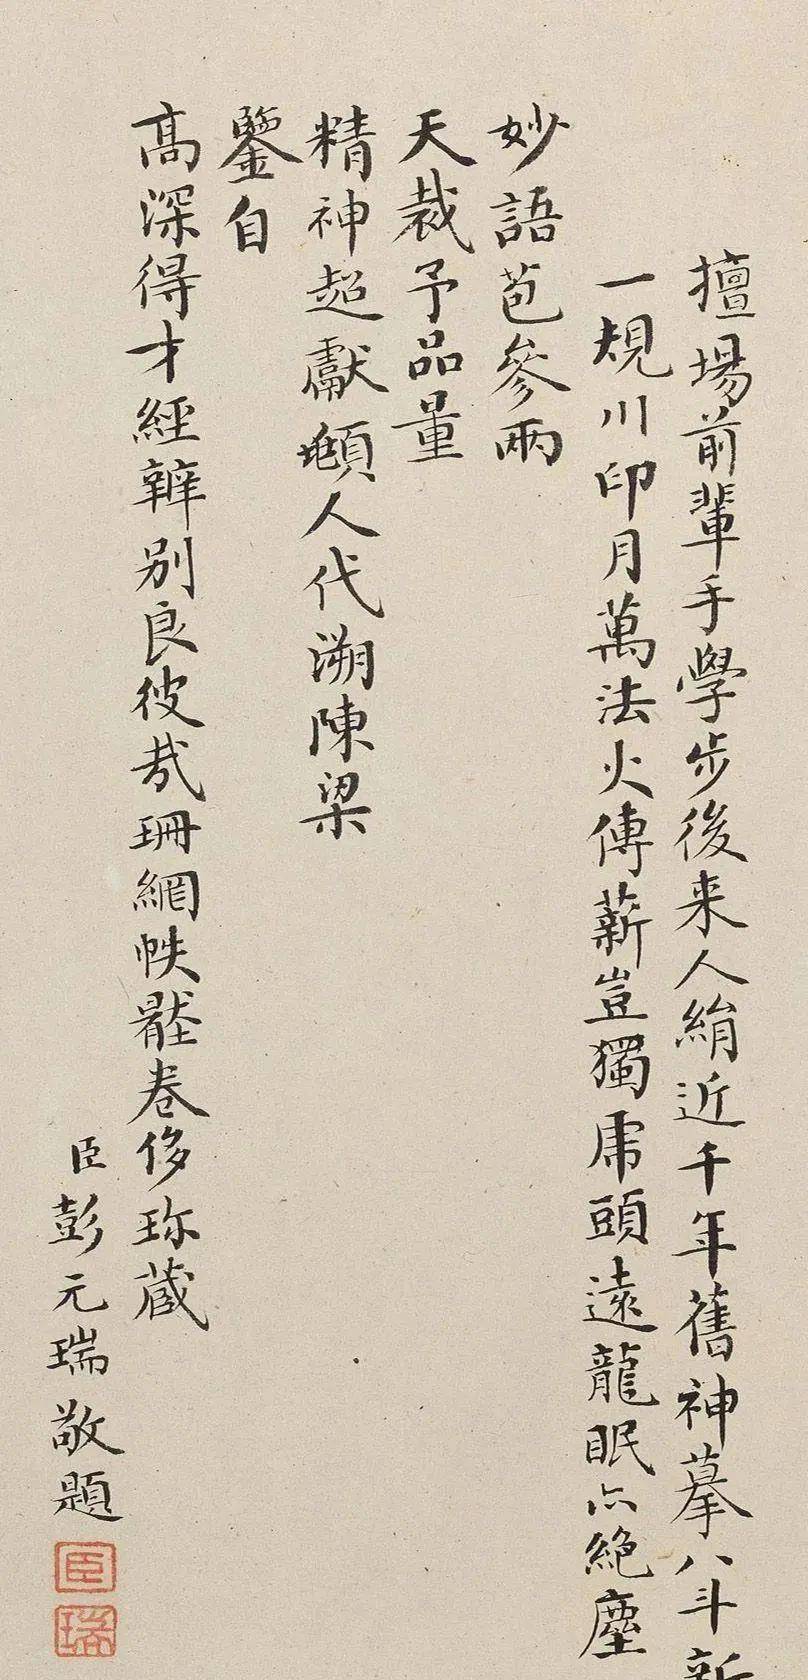 擅場前輩手學步後来人絹近千年舊神摹八斗新
一規川印月萬法火傳薪豈獨虎頭遠龍眠亦絶塵
妙語苞參兩
天裁予品量
精神超獻頫人代溯陳梁
鑒自
高深得才經辨别良彼哉珊網帙罷卷侈珍蔵
臣彭元瑞敬題
臣
瑞